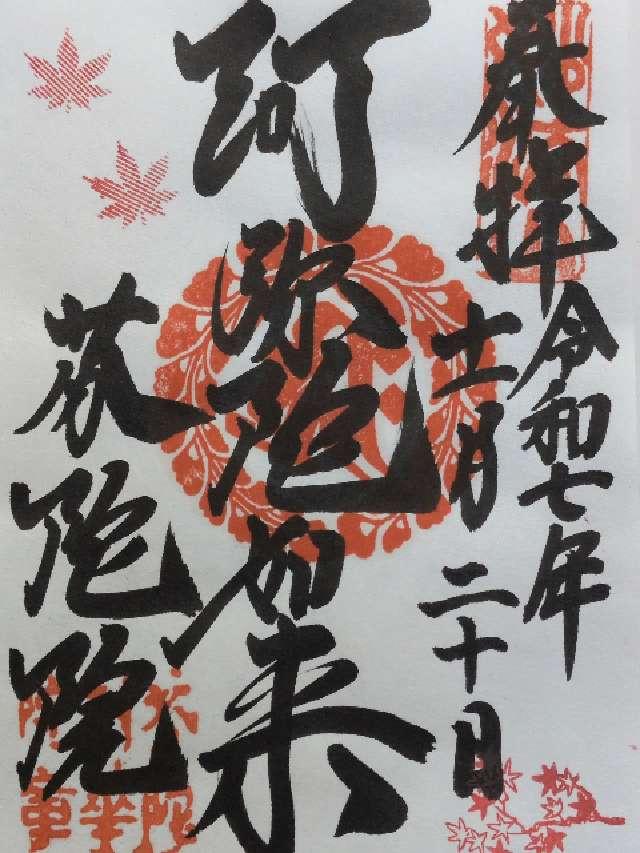 奉拝
令和七年
十一月二十日
阿弥陀如来
蔡陀院